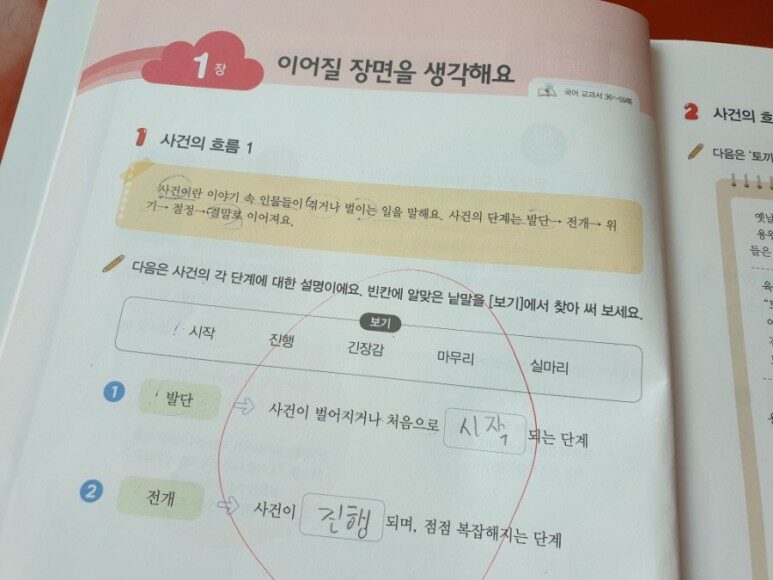 1장 이어질 장면을 생각해요
국어 교과서 36~59쪽
1 사건의 흐름 1
사건이란 이야기 속 인물들이 겪거나 벌이는 일을 말해요. 사건의 단계는 발단→ 전개→ 위
기→ 절정→결말로 이어져요.
다음은 사건의 각 단계에 대한 설명이에요. 빈칸에 알맞은 낱말을 [보기]에서 찾아 써 보세요.
보기
시작 진행 긴장감 마무리 실마리
1 발단 사건이 벌어지거나 처음으로 시작 되는 단계
2 전개 사건이 진행 되며, 점점 복잡해지는 단계
2 사건의 흐
다음은 '토끼
옛날
용왕
들은